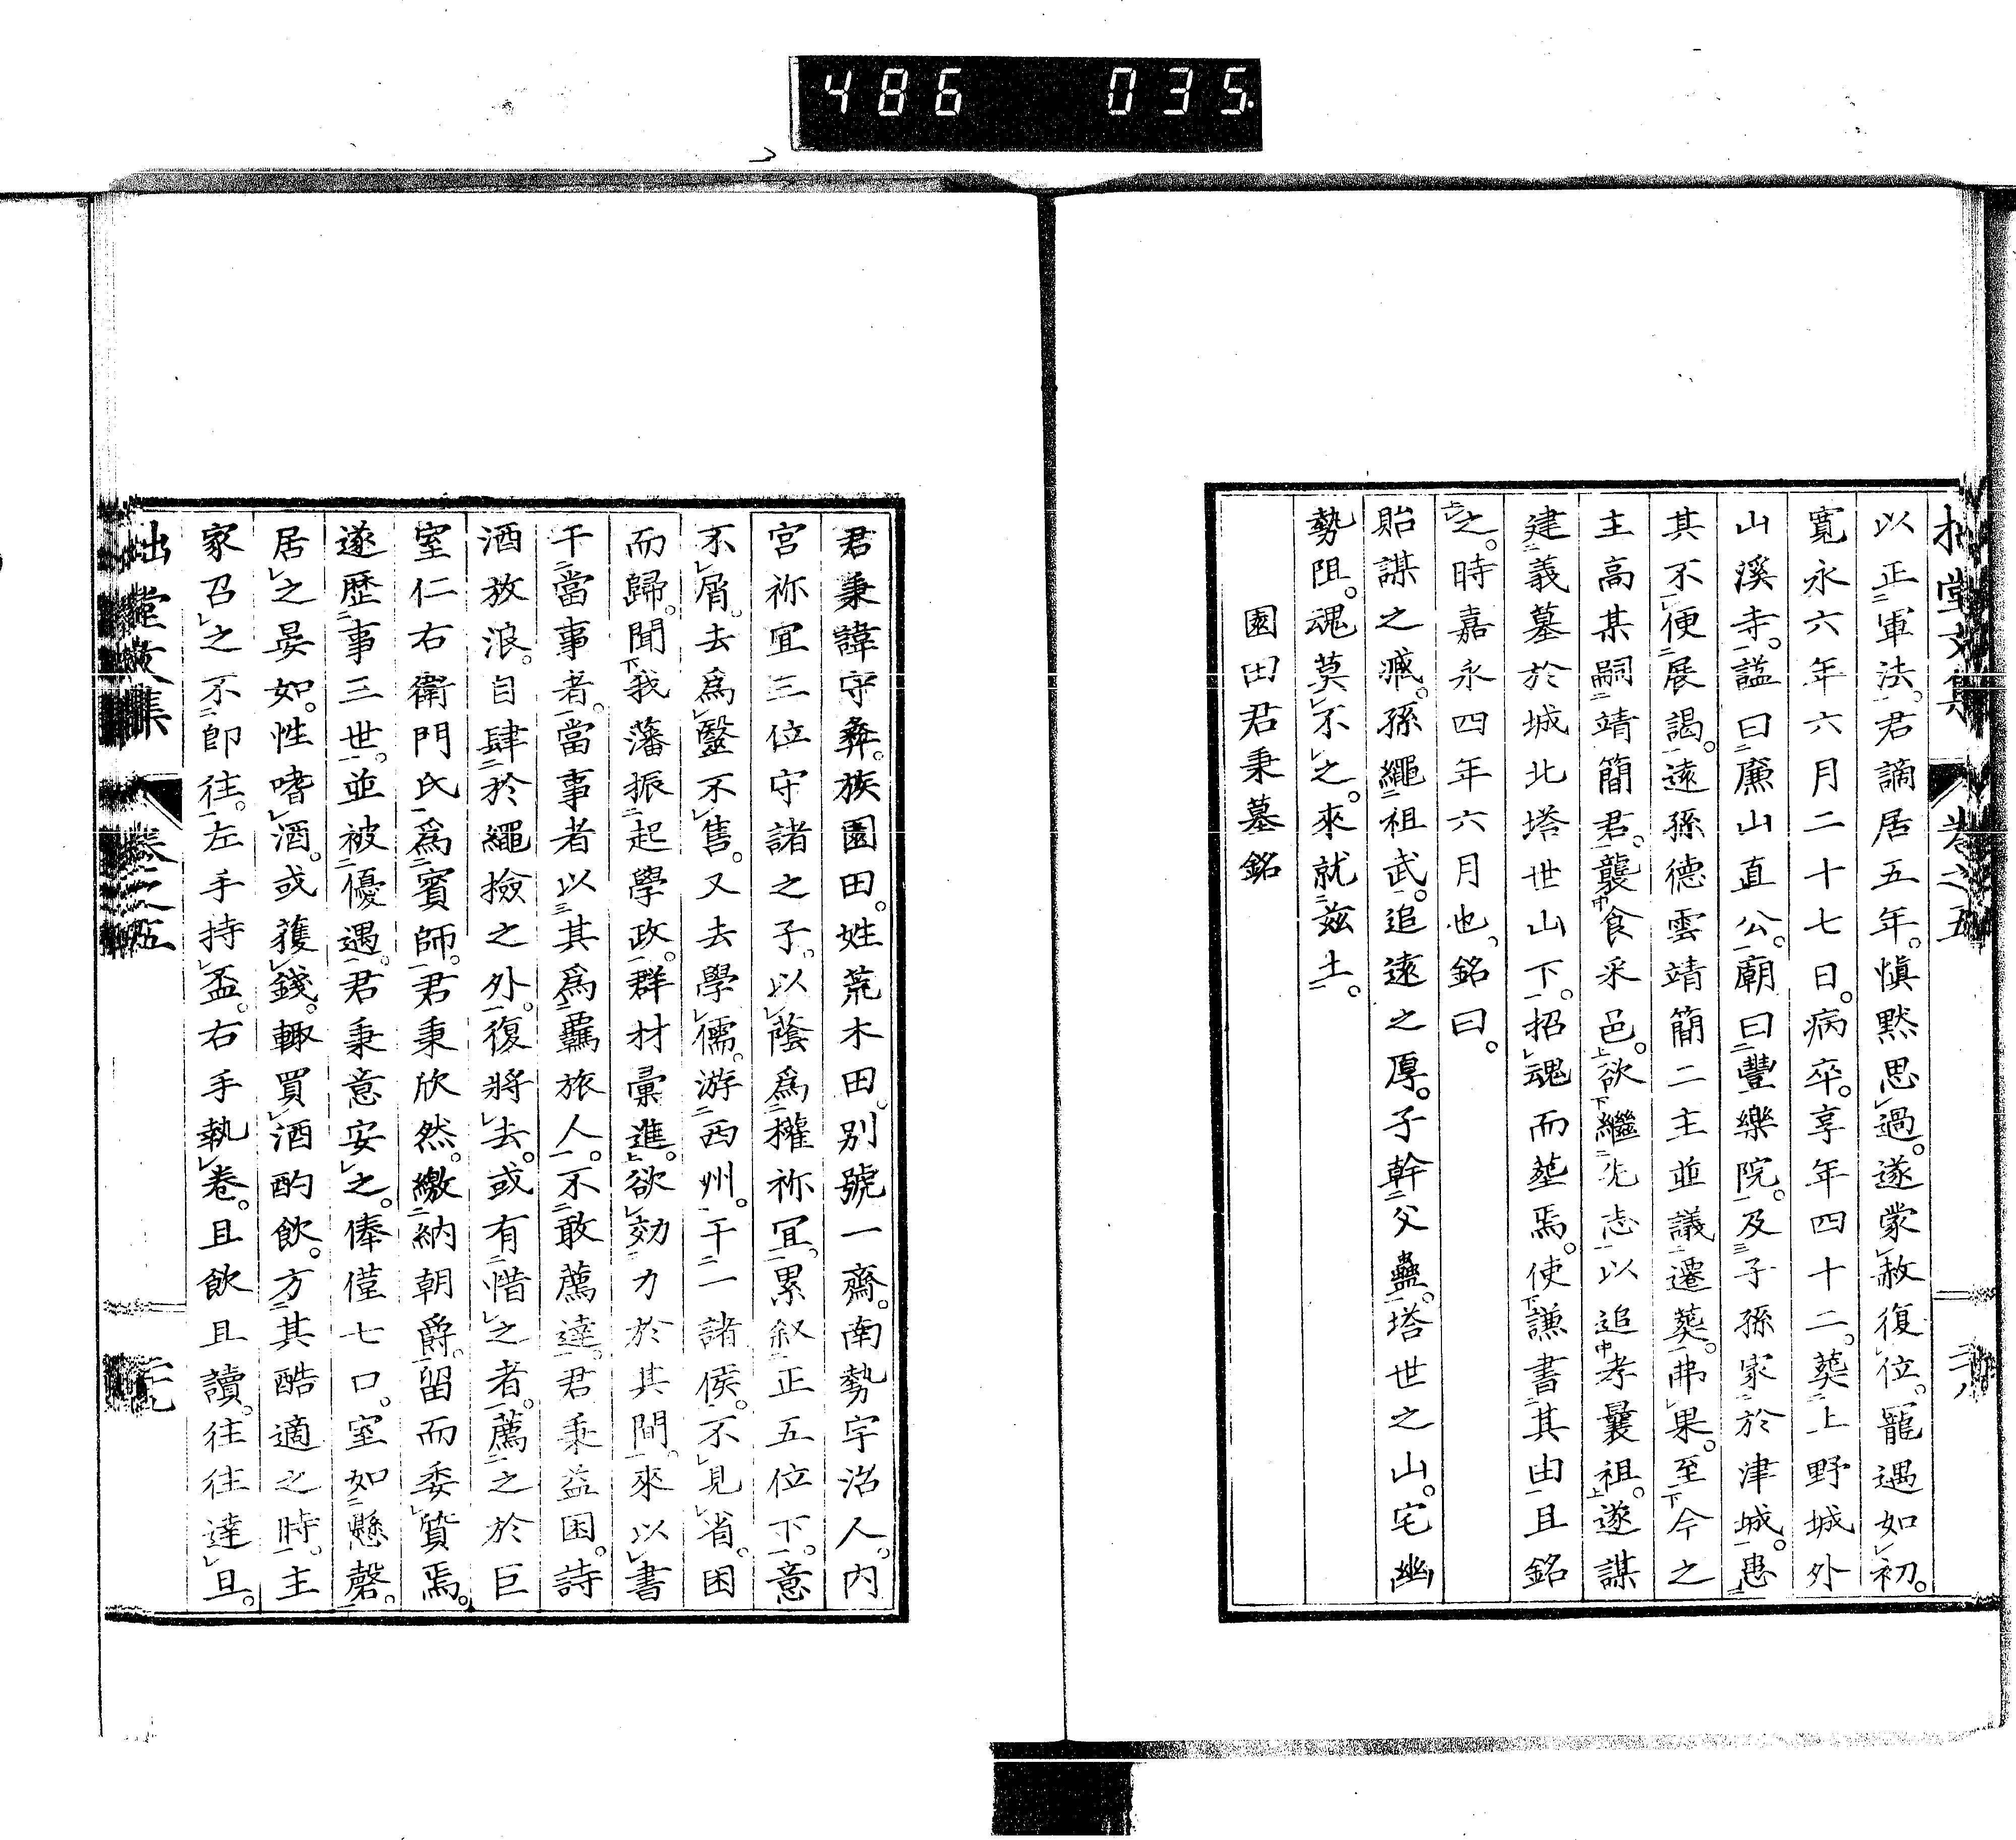 486 035
拙堂文集 卷之五 二十八
以正軍法。君謫居五年。愼默思過。遂蒙赦復位。寵遇如初。
寬永六年六月二十七日。病卒。享年四十二。葬上野城外
山溪寺。謚曰廉山直公。廟曰豐樂院。及子孫家於津城。患
其不便展謁。遠孫德雲靖簡二主並議遷葬。弗果。至今之
主高某嗣靖簡君。襲食采邑。欲繼先志以追孝曩祖。遂謀
建義墓於城北塔世山下。招魂而葬焉。使謙書其由且銘
之。時嘉永四年六月也。銘曰。
貽謀之臧。孫繩祖武。追遠之厚。子幹父蠱。塔世之山。宅幽
勢阻。魂莫不之。來就茲土。
園田君秉墓銘
君秉諱守彝。族園田。姓荒木田。別號一齋。南勢宇治人。內
宮祢宜三位守諸之子。以蔭爲權祢宜。累叙正五位下。意
不屑。去爲醫不售。又去學儒。游西州。干一諸侯。不見省。困
而歸。聞我藩振起學政。群材彙進。欲効力於其間。來以書
干當事者。當事者以其爲羈旅人。不敢薦達。君秉益困。詩
酒放浪。自肆於繩撿之外。復將去。或有惜之者。薦之於巨
室仁右衛門氏爲賓師。君秉欣然。繳納朝爵。留而委質焉。
遂歷事三世。並被優遇。君秉意安之。俸僅七口。室如懸磬。
居之晏如。性嗜酒。或獲錢。輙買酒酌飲。方其酷適之時。主
家召之不即往。左手持盃。右手執卷。且飲且讀。往往達旦。
拙堂文集 卷之五 二十九